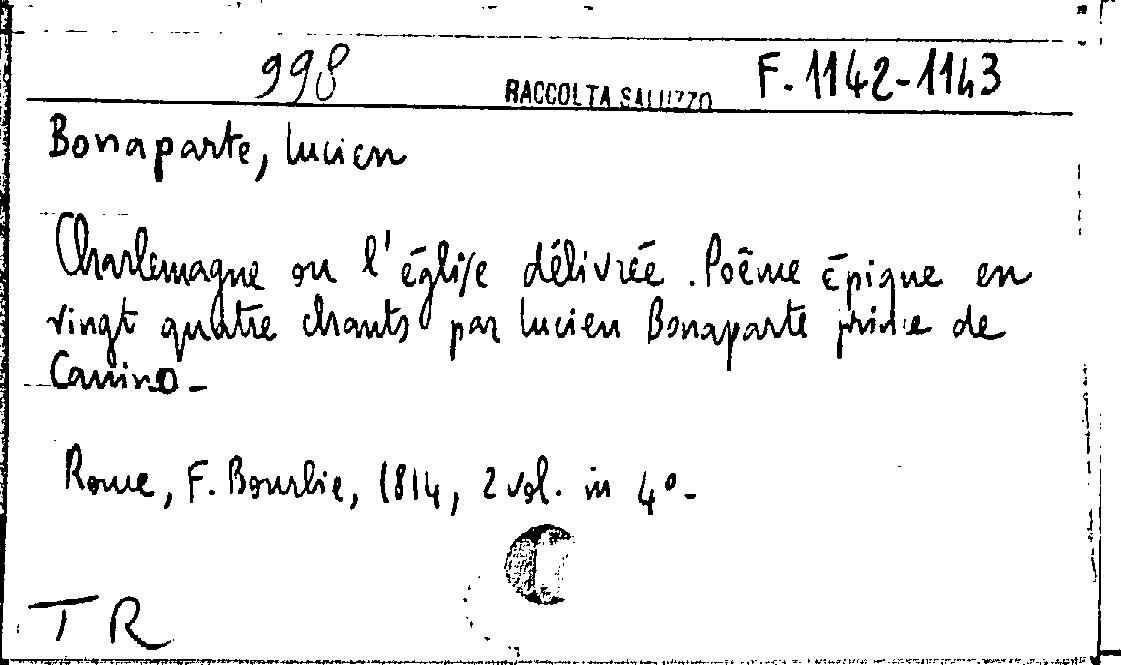 998 RACCOLTA SALUZZO F. 1142-1143
Bonaparte, Lucien
Charlemagne ou l'église délivrée. Poëme épique en
vingt quatre chants par Lucien Bonaparte prince de
Canino-
Rome, F. Bourlie, 1814, 2 vol. in 4°-
TR